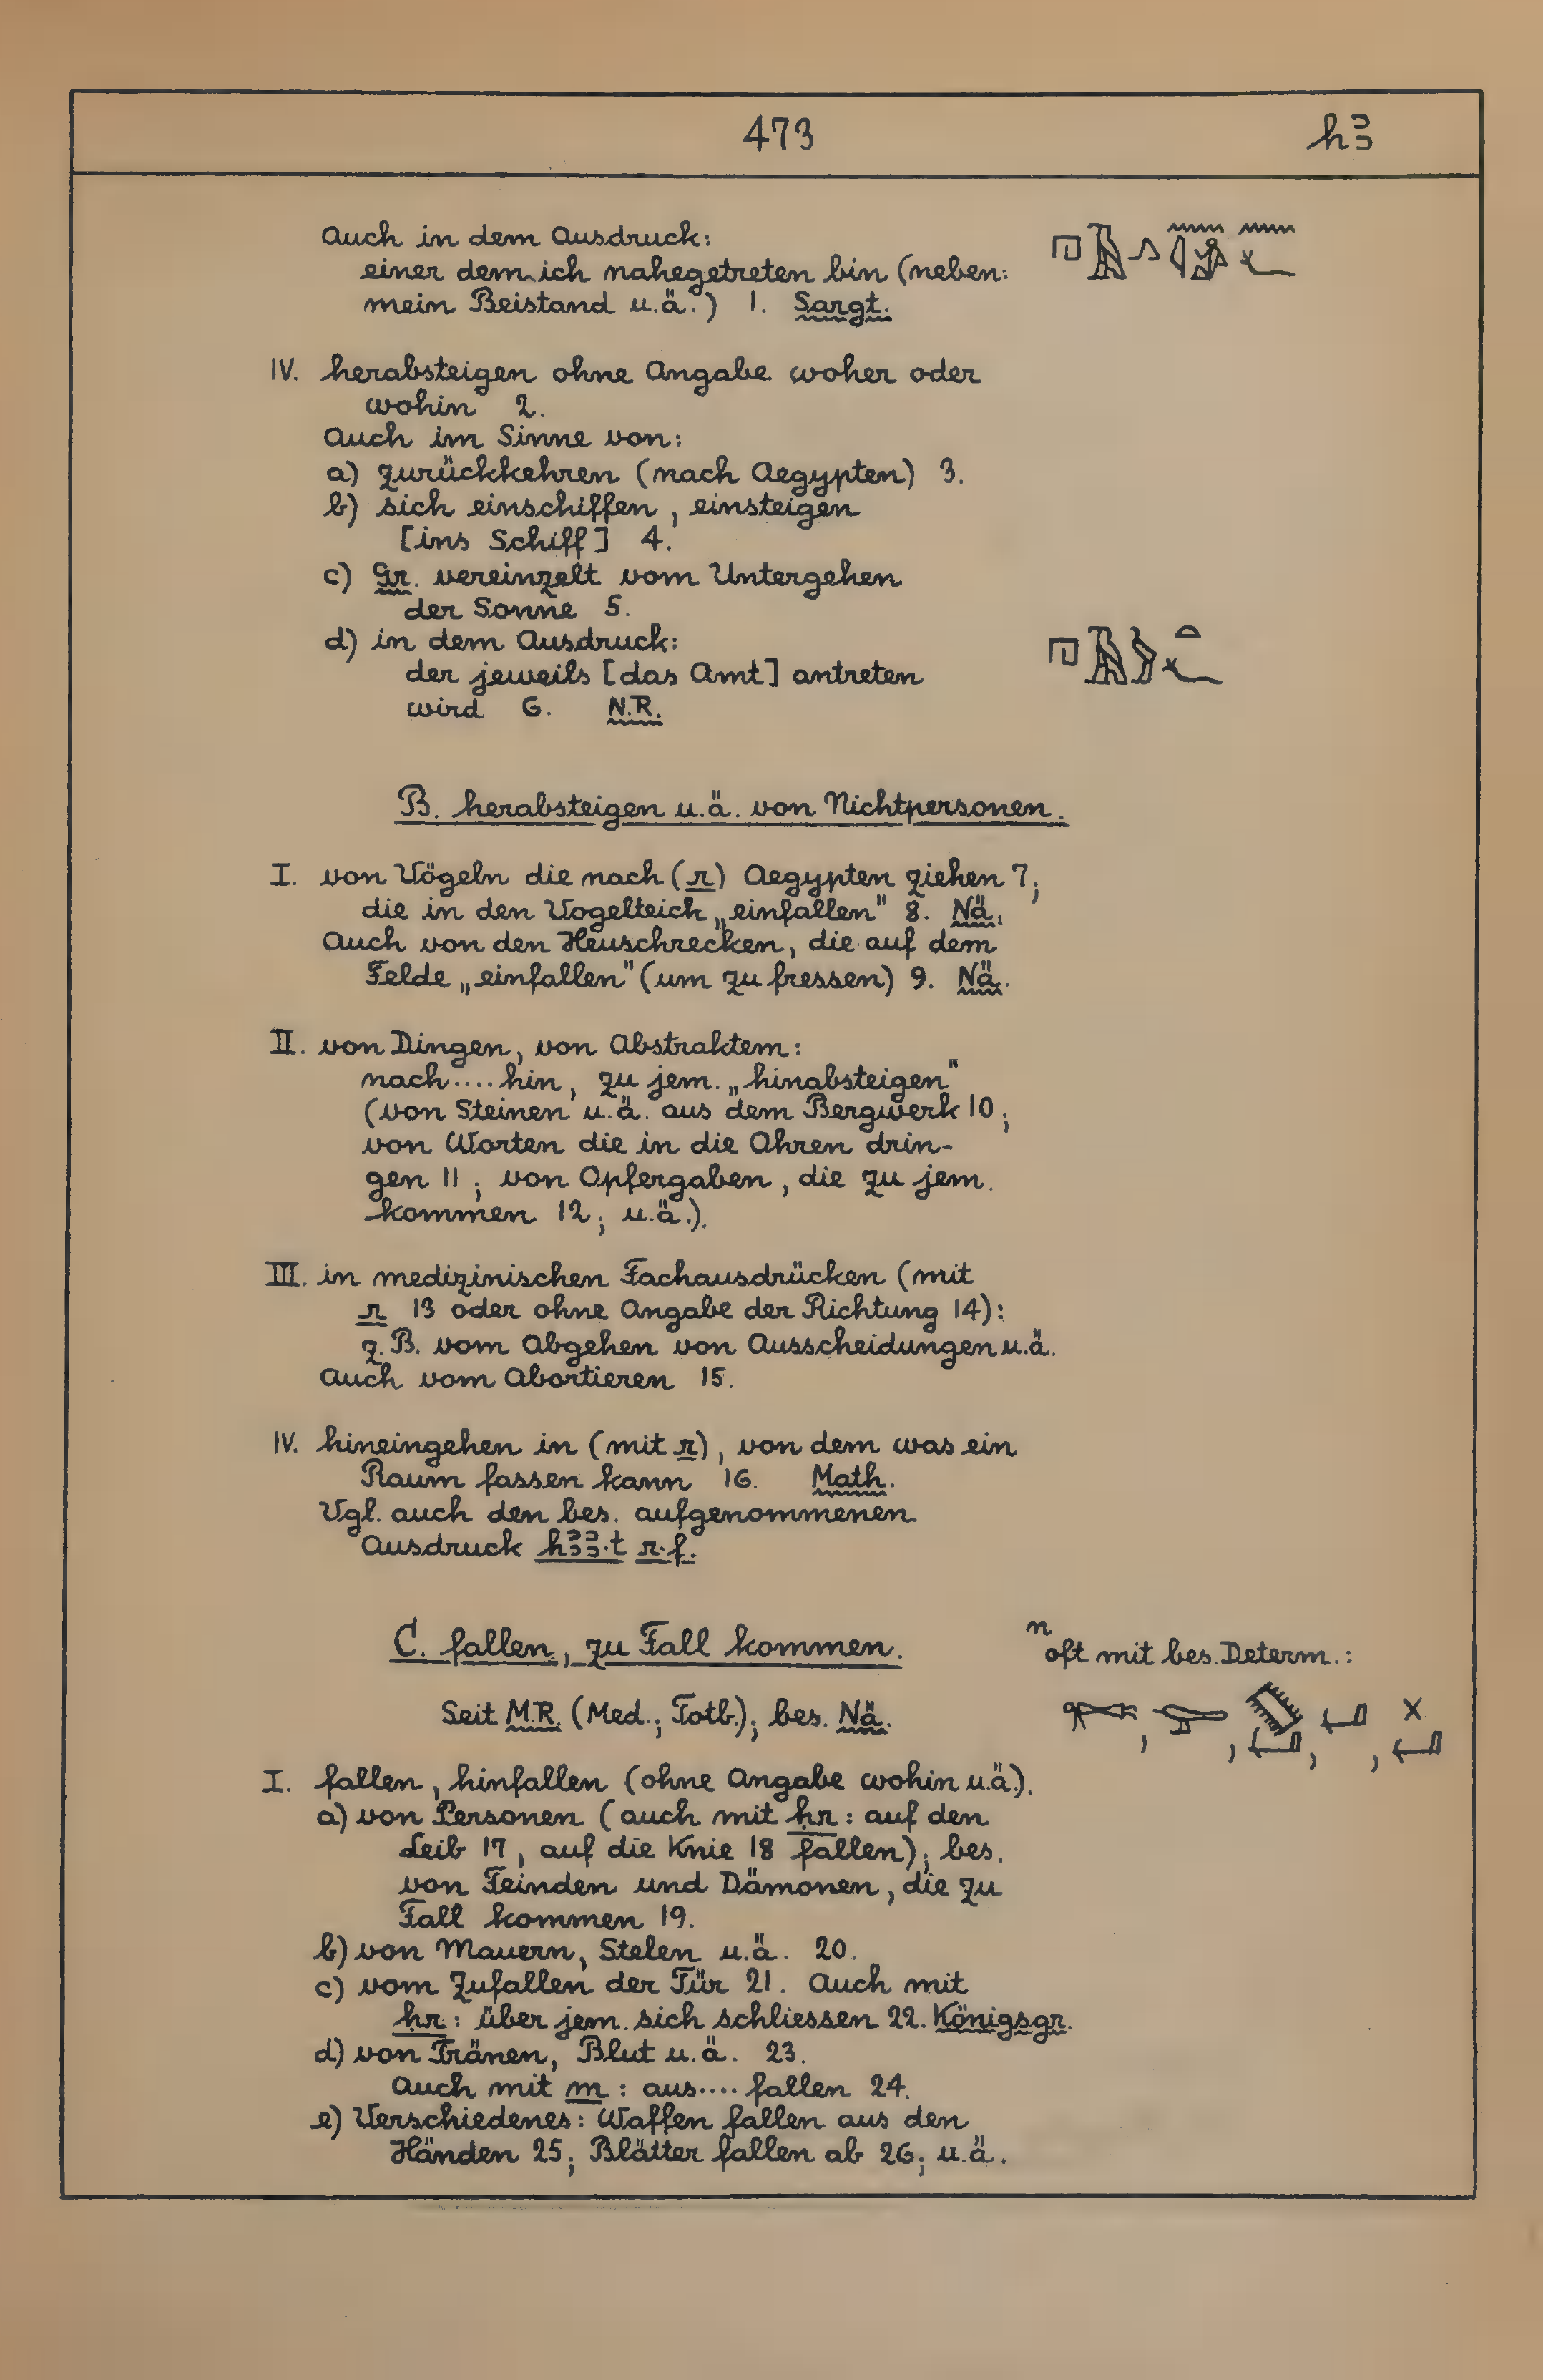 473 hꜣ
Auch in dem Ausdruck:
einer dem ich nahegetreten bin (neben:
mein Beistand u.ä.) 1. Sargt.
IV. herabsteigen ohne Angabe woher oder
wohin 2.
Auch im Sinne von:
a) zurückkehren (nach Aegypten) 3.
b) sich einschiffen, einsteigen
[ins Schiff] 4.
c) Gr. vereinzelt vom Untergehen
der Sonne 5.
d) in dem Ausdruck:
der jeweils [das Amt] antreten
wird 6. N.R.
B. herabsteigen u.ä. von Nichtpersonen.
I. von Vögeln die nach (r) Aegypten ziehen 7;
die in den Vogelteich „einfallen" 8. Nä.
Auch von den Heuschrecken, die auf dem
Felde „einfallen" (um zu fressen) 9. Nä.
II. von Dingen, von Abstraktem:
nach .... hin, zu jem. „hinabsteigen"
(von Steinen u.ä. aus dem Bergwerk 10;
von Worten die in die Ohren drin-
gen 11; von Opfergaben, die zu jem.
kommen 12; u.ä.).
III. in medizinischen Fachausdrücken (mit
r 13 oder ohne Angabe der Richtung 14):
z.B. vom Abgehen von Ausscheidungen u.ä.
Auch vom Abortieren 15.
IV. hineingehen in (mit r), von dem was ein
Raum fassen kann 16. Math.
Vgl. auch den bes. aufgenommenen
Ausdruck hꜣꜣ·t r·f.
C. fallen, zu Fall kommen.
n oft mit bes. Determ.:
Seit M.R. (Med.; Totb.); bes. Nä.
I. fallen, hinfallen (ohne Angabe wohin u.ä.).
a) von Personen (auch mit ḥr: auf den
Leib 17, auf die Knie 18 fallen); bes.
von Feinden und Dämonen, die zu
Fall kommen 19.
b) von Mauern, Stelen u.ä. 20.
c) vom Zufallen der Tür 21. Auch mit
ḥr: über jem. sich schliessen 22. Königsgr.
d) von Tränen, Blut u.ä. 23.
Auch mit m: aus .... fallen 24.
e) Verschiedenes: Waffen fallen aus den
Händen 25; Blätter fallen ab 26; u.ä.